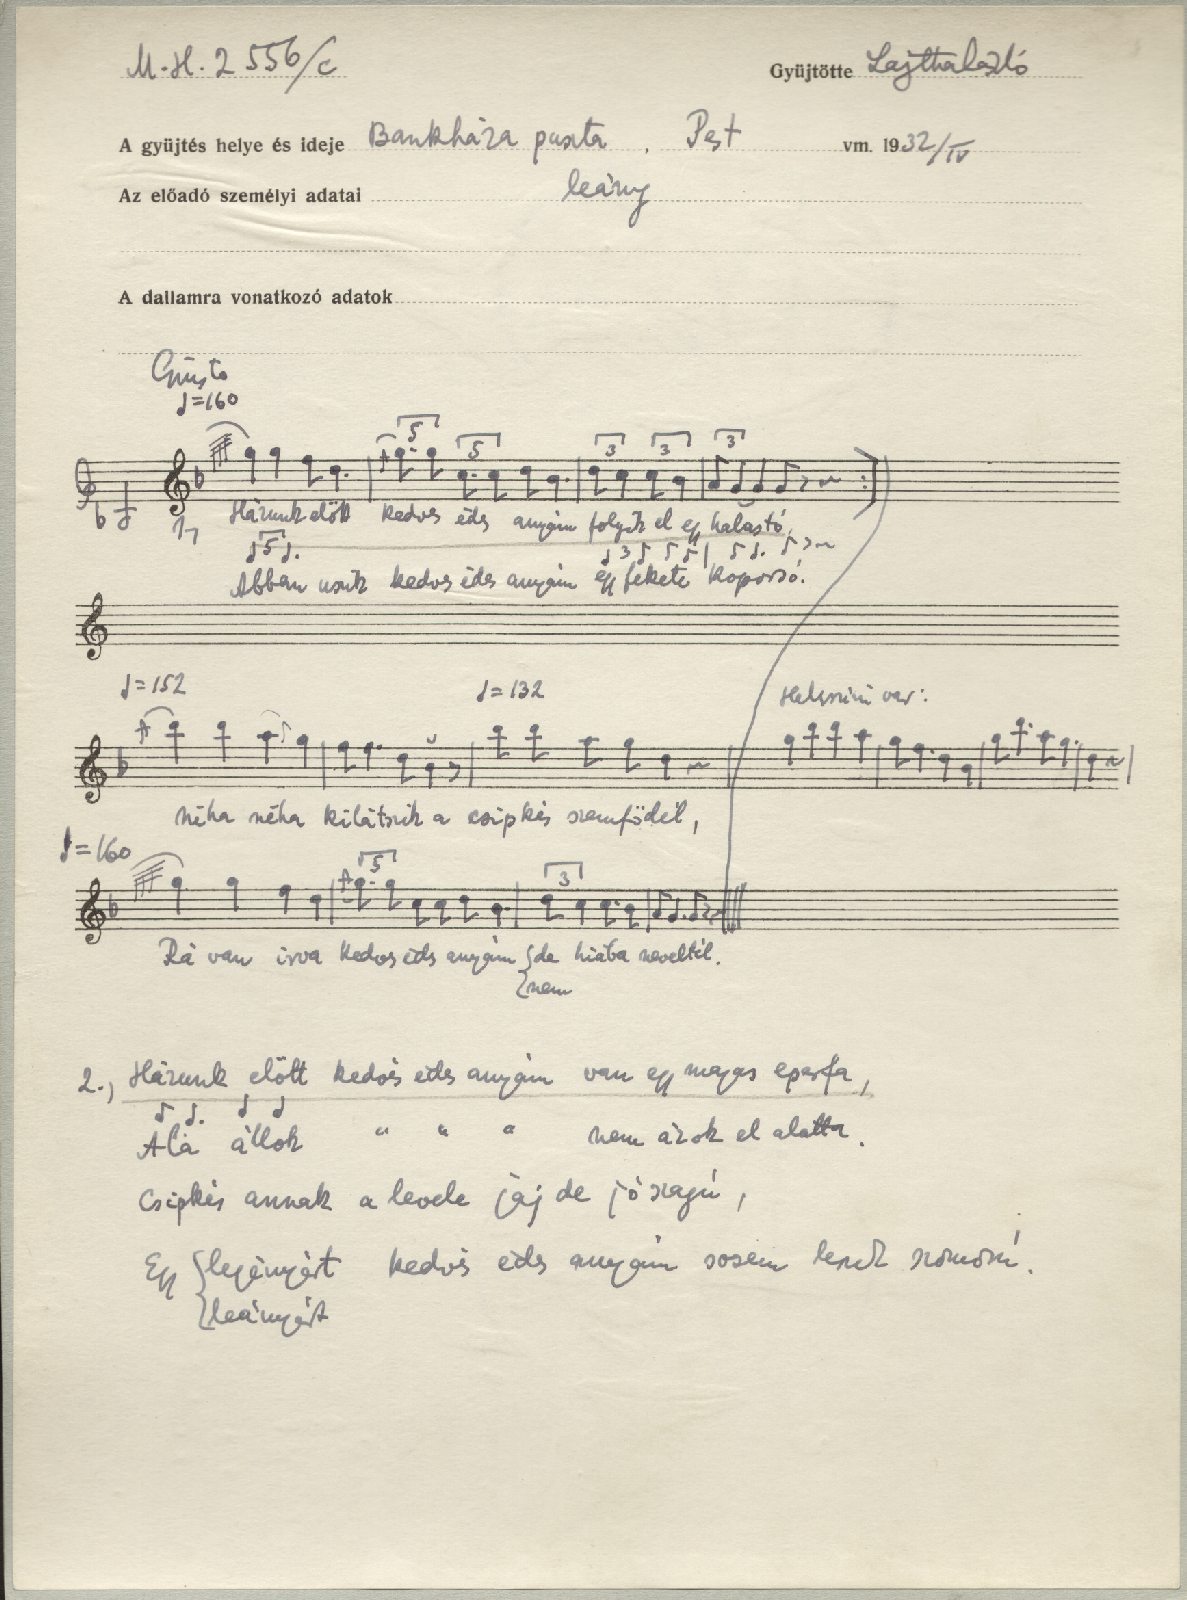 M.H. 2556/c
Gyüjtötte Lajtha László
A gyüjtés helye és ideje Bankháza puszta, Pest vm. 1932/IV
Az előadó személyi adatai leány
A dallamra vonatkozó adatok
Giusto
♩=160
5 5 3 3 3
1,
Házunk előtt kedves édes anyám folyik el egy halastó,
5 3
Abban úszik kedves édes anyám egy fekete koporsó.
♩=152 ♩=132 Helyszíni var:
néha néha kilátszik a csipkés szemfödél,
♩=160
5 3
Rá van irva kedves édes anyám { de hiába neveltél.
{ nem
2., Házunk előtt kedvés édes anyám van egy magas eperfa,
Alá állok " " " nem ázok el alatta.
Csipkés annak a levele jáj de jó szagú,
Egy { legényért kedvés édes anyám sosem leszek szomorú.
{ leányért